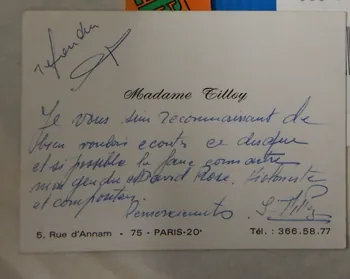 Madame Tilloy
Je vous suis reconnaissant de
bien vouloir écouter ce disque
et si possible le faire connaitre
mon gendre David Rose. Violoniste
et compositeur.
Remerciements
5. Rue d'Annam - 75 - PARIS-20e
Tél. : 366.58.77